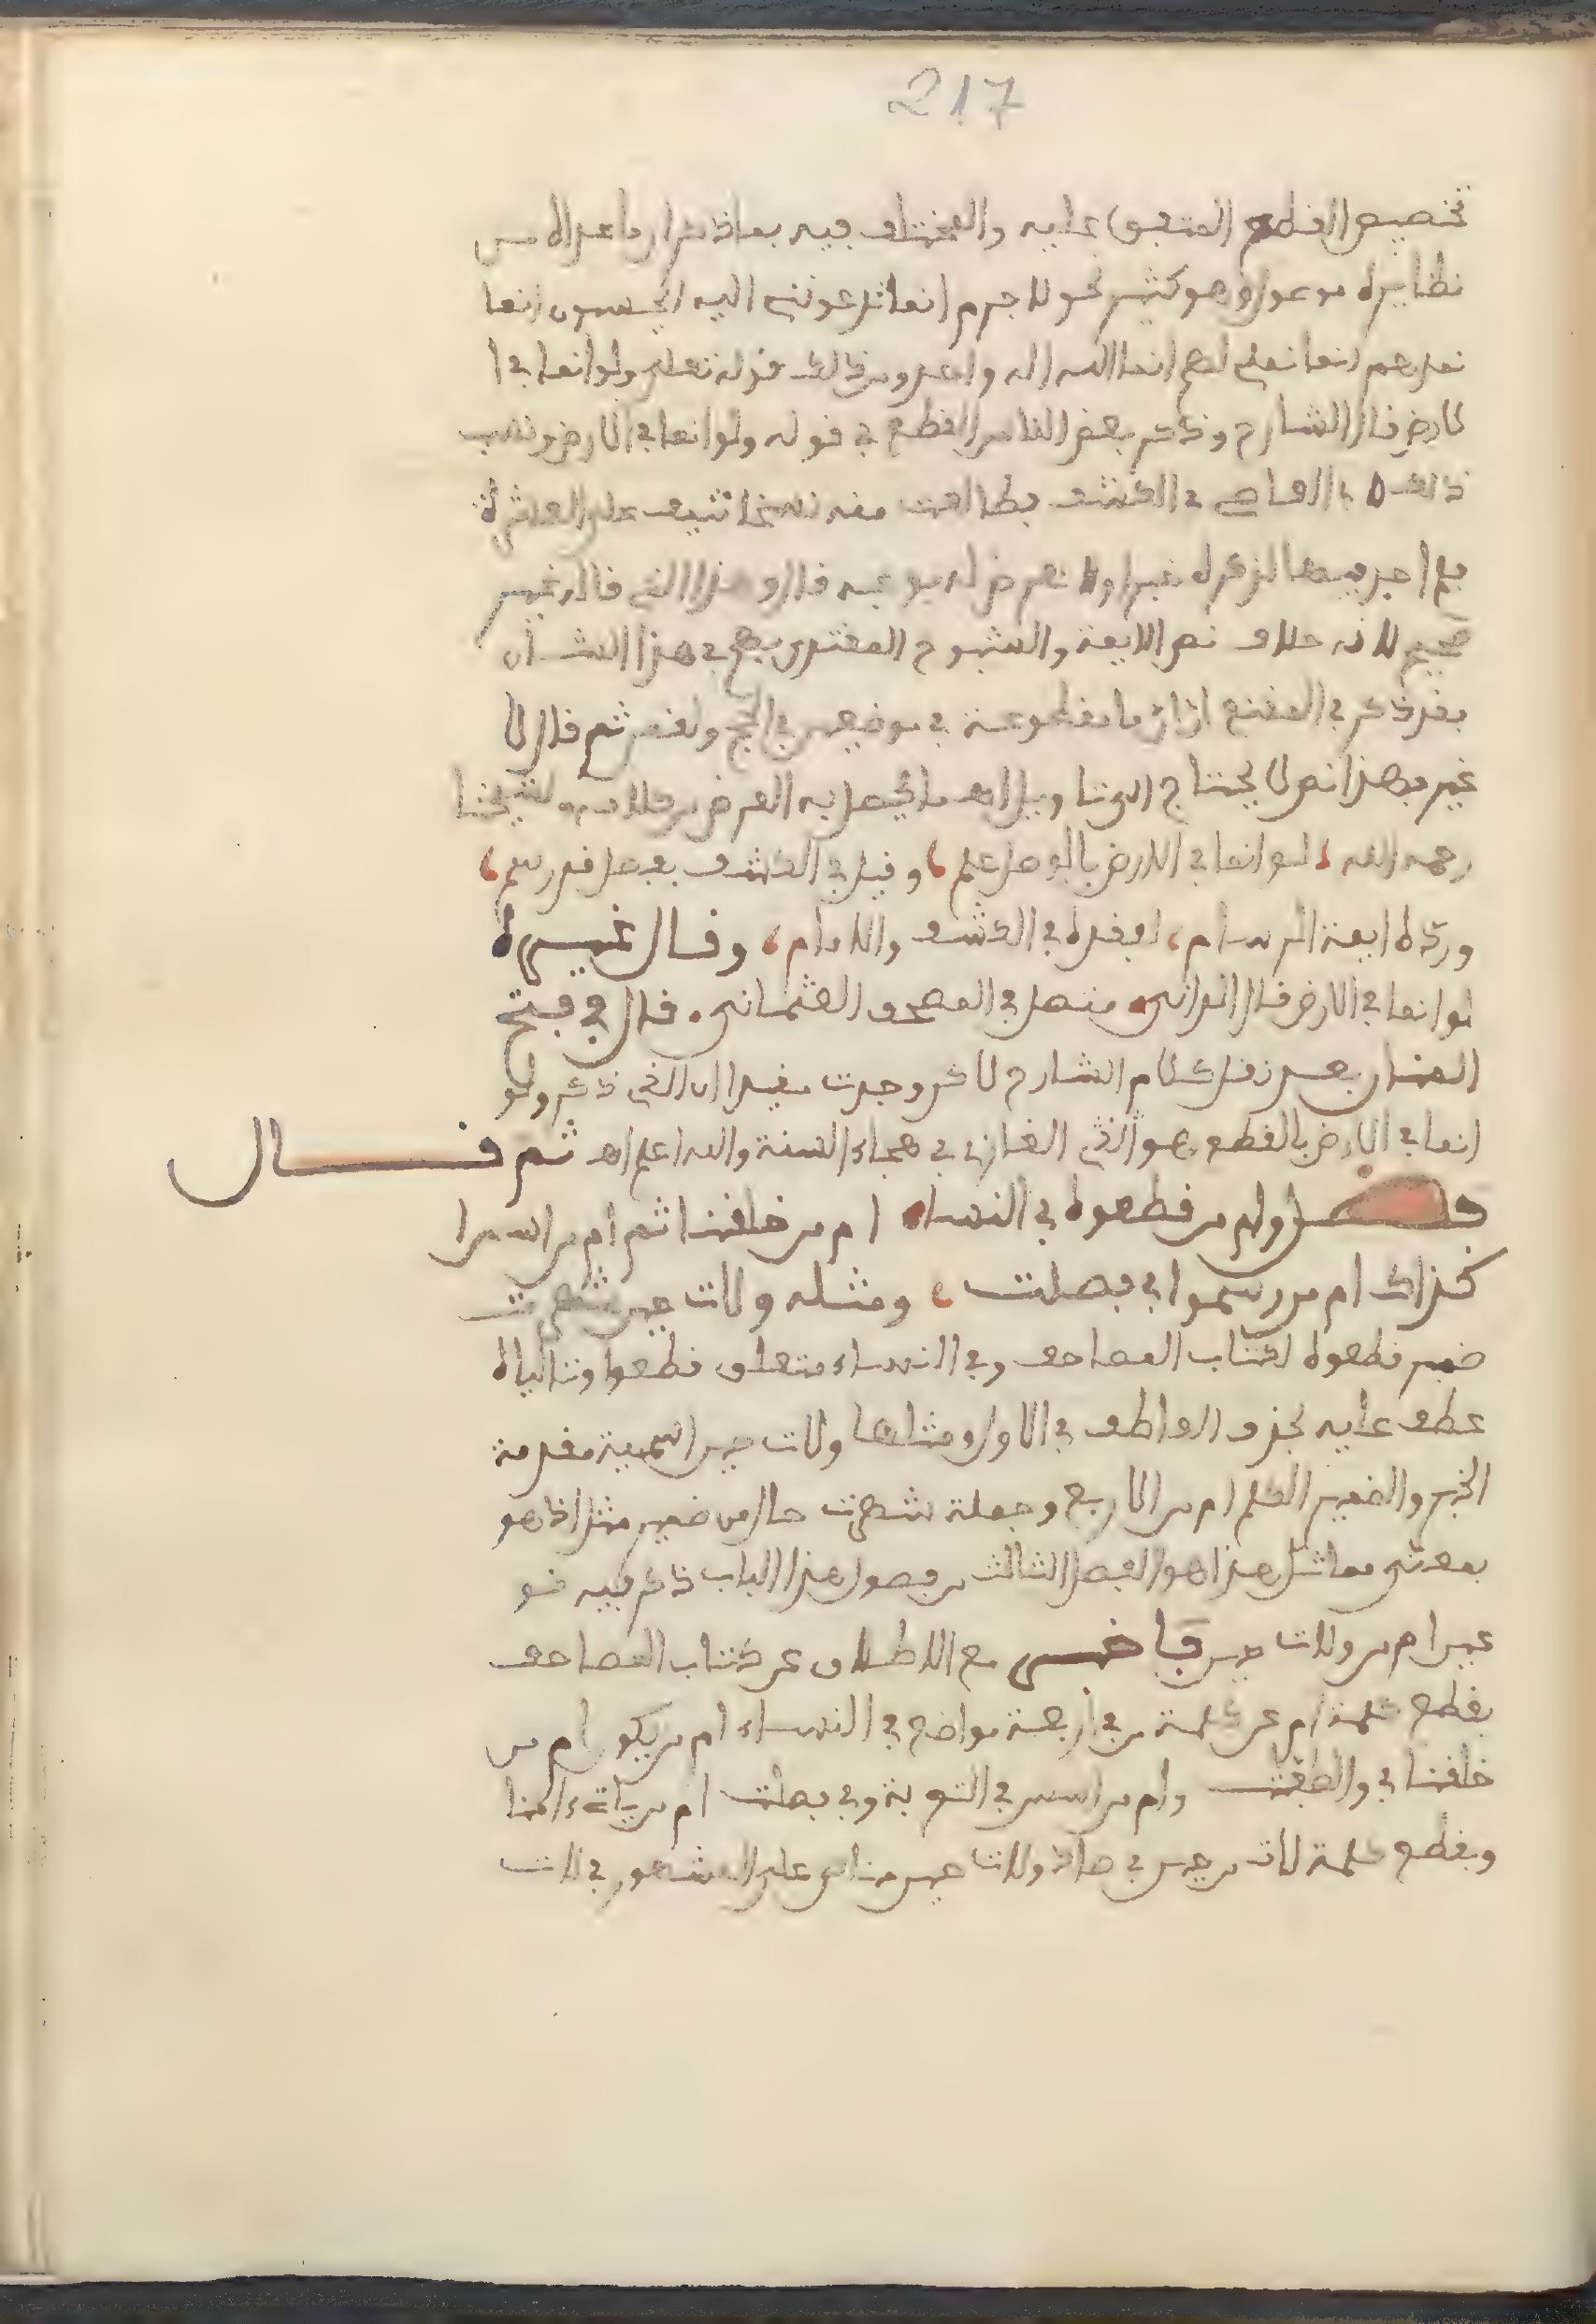 217
تخصيص القطع المتفق عليه والمختلف فيه بما ذكر ان ما عداه من
نظايره موصول وهو كثير نحو لا جرم انما تدعونني اليه ايحسبون انما
نمدهم انما نملي لهم انما الله اله واحد ومن ذلك قوله تعلى ولو انما في ا
لارض قال الشارح وذكر بعض الناس القطع في قوله ولو انما في الارض ونسب
ذلك الى في الكشف فطالعت منه نسخا تنيف على العشرة
فلم اجد فيها لذكره خبرا ولا تعرض له بوجه قال وهذا الذي قاله غير
صحيح لانه خلاف نص الايمة والشيوخ المقتدى بهم في هذا الشان
فقد ذكر في المقنع ان ان ما مقطوعة في موضعين في الحج ولقمن ثم قال لا
غير فهذا نص لا يحتاج الى تاويل اهـ ما يحصل به الغرض من كلامه لشيخنا
رحمه الله، لو انما في الارض بالوصل علم، وقيل في الكشف بفصل قد رسم،
ورده ايمة المرسام، لفقده في الكشف والامام، وقال غيره
لو انما في الارض قال الداني، متصل في المصحف العثماني. قال في فتح
المنان بعد نقل كلام الشارح لاكن وجدت مقيدا ان الذي ذكر ولو
انما في الارض بالقطع هو الغازي في هجاء السنة والله اعلم اهـ ثم قال
فصل وام من قطعوه في النساء ام من خلقنا ثم ام من اسسا
كذاك ام من رسموا في فصلت، ومثله ولات حين شهرت
ضمير قطعوه لكتاب المصاحف وفي النساء متعلق قطعوا وتالياه
عطف عليه بحذف العاطف في الاول ومثلها ولات حين اسمية مقدمة
الخبر والضمير لكلم ام من الاربع وجملة شهرت حال من ضمير مثل اذ هو
بمعنى مماثل هذا هو الفصل الثالث من فصول هذا الباب ذكر فيه نو
عين ام من ولات حين فاخبر مع الاطلاق عن كتاب المصاحف
بقطع كلمة ام عن كلمة من في اربعة مواضع في النساء ام من يكون ام من
خلقنا في والصفت وام من اسس في التوبة وفي فصلت ام من ياتي ءامنا
وبقطع كلمة لات من حين في صاد ولات حين مناص على المشهور في لات